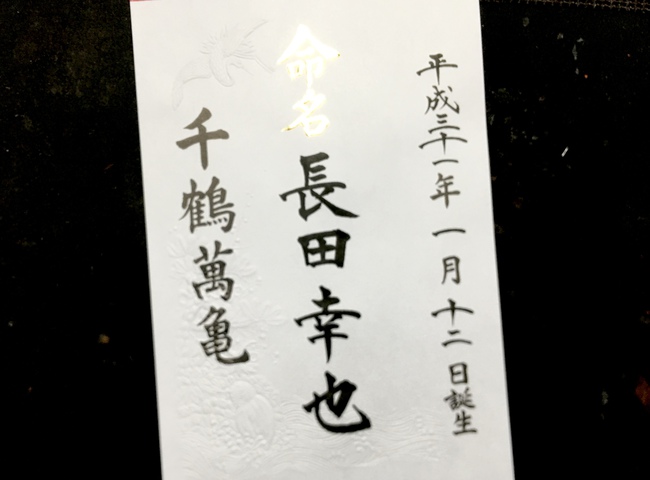 平成三十一年一月十二日誕生
命名
長田幸也
千鶴萬亀